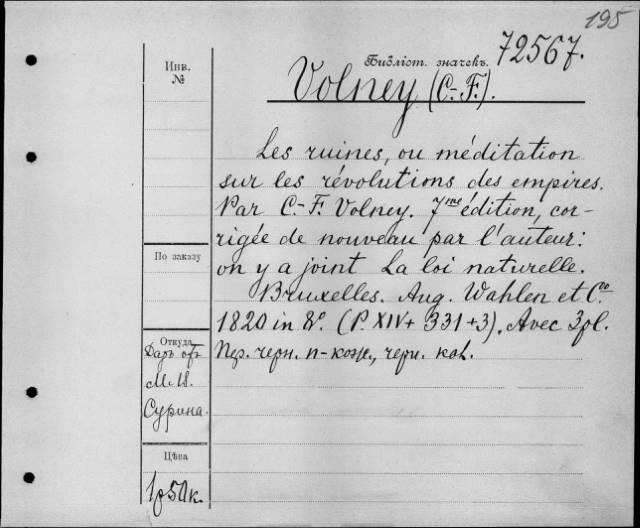 195
Библіот. значокъ. 72567.
Инв.
№
Volney (C.-F.).
Les ruines, ou méditation
sur les révolutions des empires.
Par C.-F. Volney. 7me édition, cor-
rigée de nouveau par l'auteur:
on y a joint La loi naturelle.
Bruxelles. Aug. Wahlen et Co.
1820 in 8o. (P. XIV + 331 + 3). Avec 3 pl.
Пер. черн. п-кож., черн. кон.
По заказу
Откуда
Даръ отъ
Сурина.
Цѣна
1р50к.